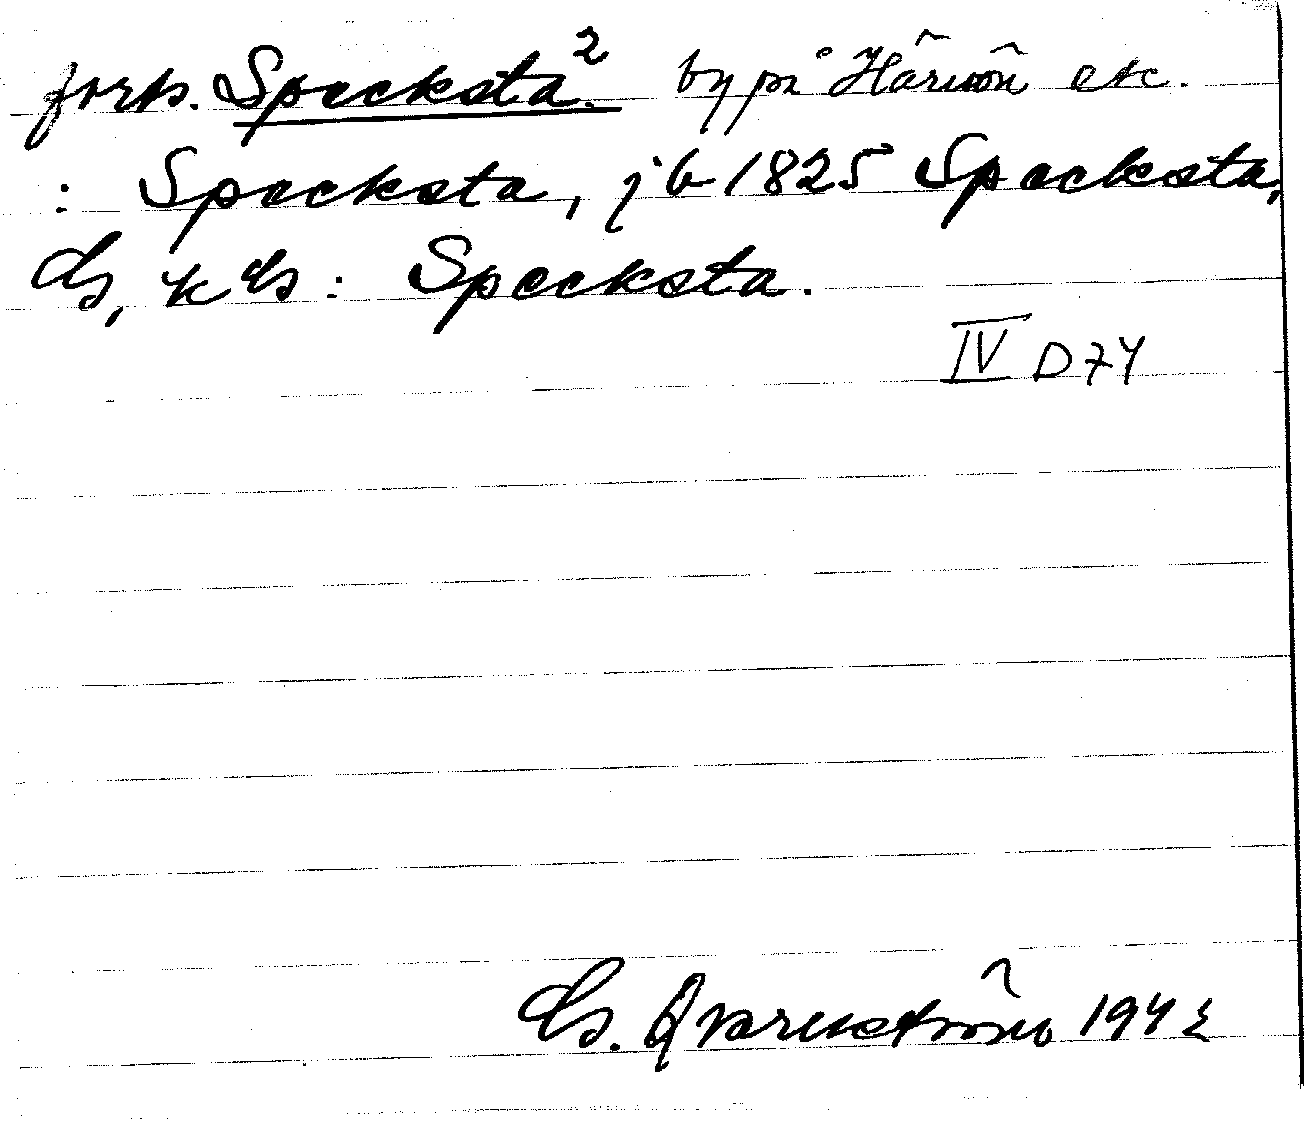 forts. Specksta². by på Härnön etc.
: Specksta, jb 1825 Specksta,
Gs, k Gs: Specksta.
IV D74
G. Qvarnström 1942